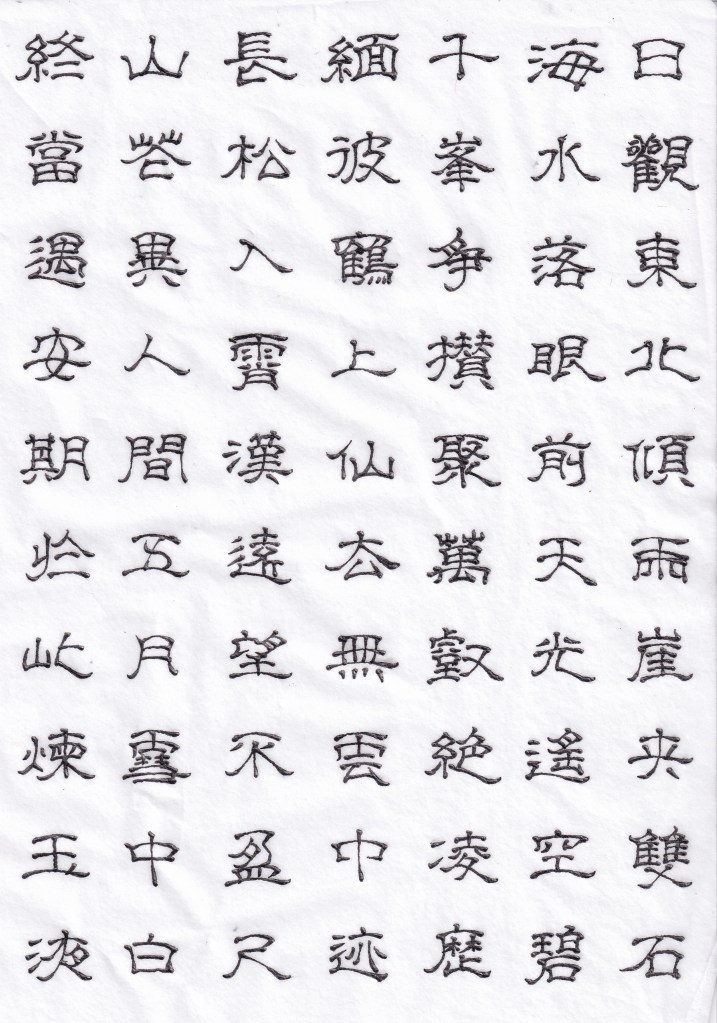 日觀東北傾兩崖夾雙石
海水落眼前天光遙空碧
千峯爭攢聚萬壑絕凌歷
緬彼鶴上仙去無雲中迹
長松入霄漢遠望不盈尺
山花異人間五月雪中白
終當遇安期於此煉玉液